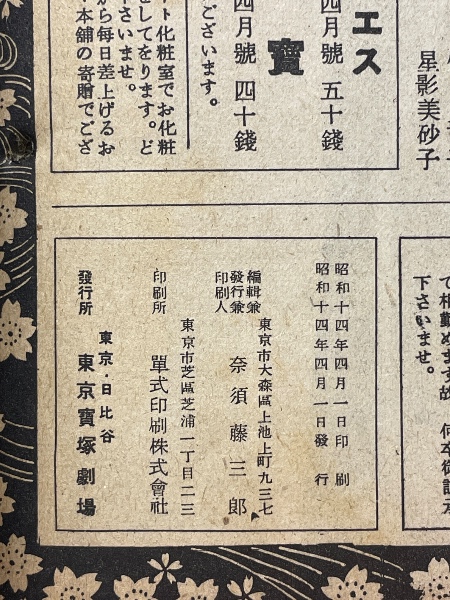 星影美砂子
エス
四月號 五十錢
寶
四月號 四十錢
ございます。
ト化粧室でお化粧
をしてをります。ど
さいませ。
から毎日差上げるお
本舗の寄贈でござ
で相勤めます故
下さいませ。
昭和十四年四月一日印刷
昭和十四年四月一日發行
東京市大森區上池上町九三七
編輯兼
發行兼
印刷人
奈須藤三郎
東京市芝區芝浦一丁目二三
印刷所 單式印刷株式會社
東京・日比谷
發行所 東京寶塚劇場